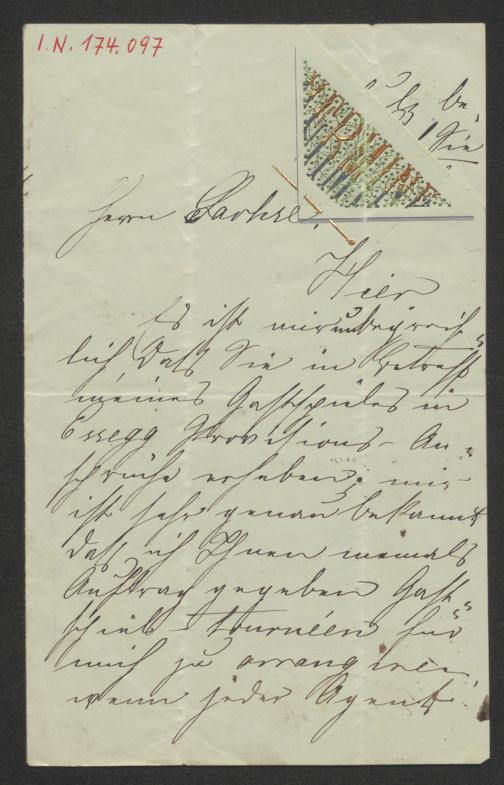 I.N. 174.097
HERMINE
be,
Sie
Herrn Sachse!
Hier
Es ist mir unbegreif
lich daß Sie in Betreff
meines Gastspieles in
Essegg Provisions-An
sprüche erheben, mir
ist sehr genau bekannt
daß ich Ihnen niemals
Auftrag gegeben Gast
spiels-tournéen für
mich zu arrangieren
wenn jeder Agent